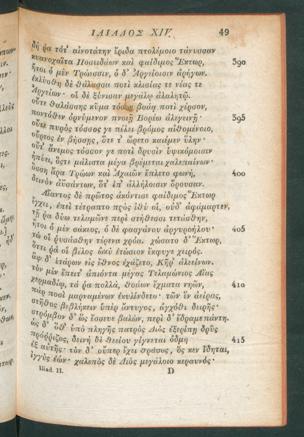 ΙΛΙΑΔΟΣ XIV. 49
δή ῥα τότ᾽ αἰνοτάτην ἔριδα πτολέμοιο τάνυσσαν
κυανοχαῖτα Ποσειδάων καὶ φαίδιμος Ἕκτωρ, 390
ἤτοι ὁ μὲν Τρώεσσιν, ὁ δ᾽ Ἀργείοισιν ἀρήγων.
ἐκλύσθη δὲ θάλασσα ποτὶ κλισίας τε νέας τε
Ἀργείων· οἱ δὲ ξύνισαν μεγάλῳ ἀλαλητῷ.
οὔτε θαλάσσης κῦμα τόσον βοάᾳ ποτὶ χέρσον,
ποντόθεν ὀρνύμενον πνοιῇ Βορέω ἀλεγεινῇ· 395
οὔτε πυρὸς τόσσος γε πέλει βρόμος αἰθομένοιο,
οὔρεος ἐν βήσσῃς, ὅτε τ᾽ ὤρετο καιέμεν ὕλην·
οὔτ᾽ ἄνεμος τόσσον γε ποτὶ δρυσὶν ὑψικόμοισιν
ἠπύει, ὅστε μάλιστα μέγα βρέμεται χαλεπαίνων·
ὅσση ἄρα Τρώων καὶ Ἀχαιῶν ἔπλετο φωνή, 400
δεινὸν ἀϋσάντων, ὅτ᾽ ἐπ᾽ ἀλλήλοισιν ὄρουσαν.
Αἴαντος δὲ πρῶτος ἀκόντισε φαίδιμος Ἕκτωρ
ἔγχει, ἐπεὶ τέτραπτο πρὸς ἰθύ οἱ, οὐδ᾽ ἀφάμαρτεν,
τῇ ῥα δύω τελαμῶνε περὶ στήθεσσι τετάσθην,
ἤτοι ὁ μὲν σάκεος, ὁ δὲ φασγάνου ἀργυροήλου· 405
τώ οἱ ῥυσάσθην τέρενα χρόα. χώσατο δ᾽ Ἕκτωρ,
ὅττι ῥά οἱ βέλος ὠκὺ ἐτώσιον ἔκφυγε χειρός.
ἂψ δ᾽ ἑτάρων εἰς ἔθνος ἐχάζετο, Κῆρ᾽ ἀλεείνων.
τὸν μὲν ἔπειτ᾽ ἀπιόντα μέγας Τελαμώνιος Αἴας
χερμαδίῳ, τά ῥα πολλά, θοάων ἔχματα νηῶν, 410
πὰρ ποσὶ μαρναμένων ἐκυλίνδετο· τῶν ἓν ἀείρας,
στῆθος βεβλήκειν ὑπὲρ ἄντυγος, ἀγχόθι δειρῆς·
στρόμβον δ᾽ ὣς ἔσσευε βαλών, περὶ δ᾽ ἔδραμε πάντη.
ὡς δ᾽ ὅθ᾽ ὑπὸ πληγῆς πατρὸς Διὸς ἐξερίπῃ δρῦς
πρόῤῥιζος, δεινὴ δὲ θεείου γίγνεται ὀδμὴ 415
ἐξ αὐτῆς· τὸν δ᾽ οὔπερ ἔχει θράσος, ὅς κεν ἴδηται,
ἐγγὺς ἐών· χαλεπὸς δὲ Διὸς μεγάλοιο κεραυνός·
Iliad. II. D